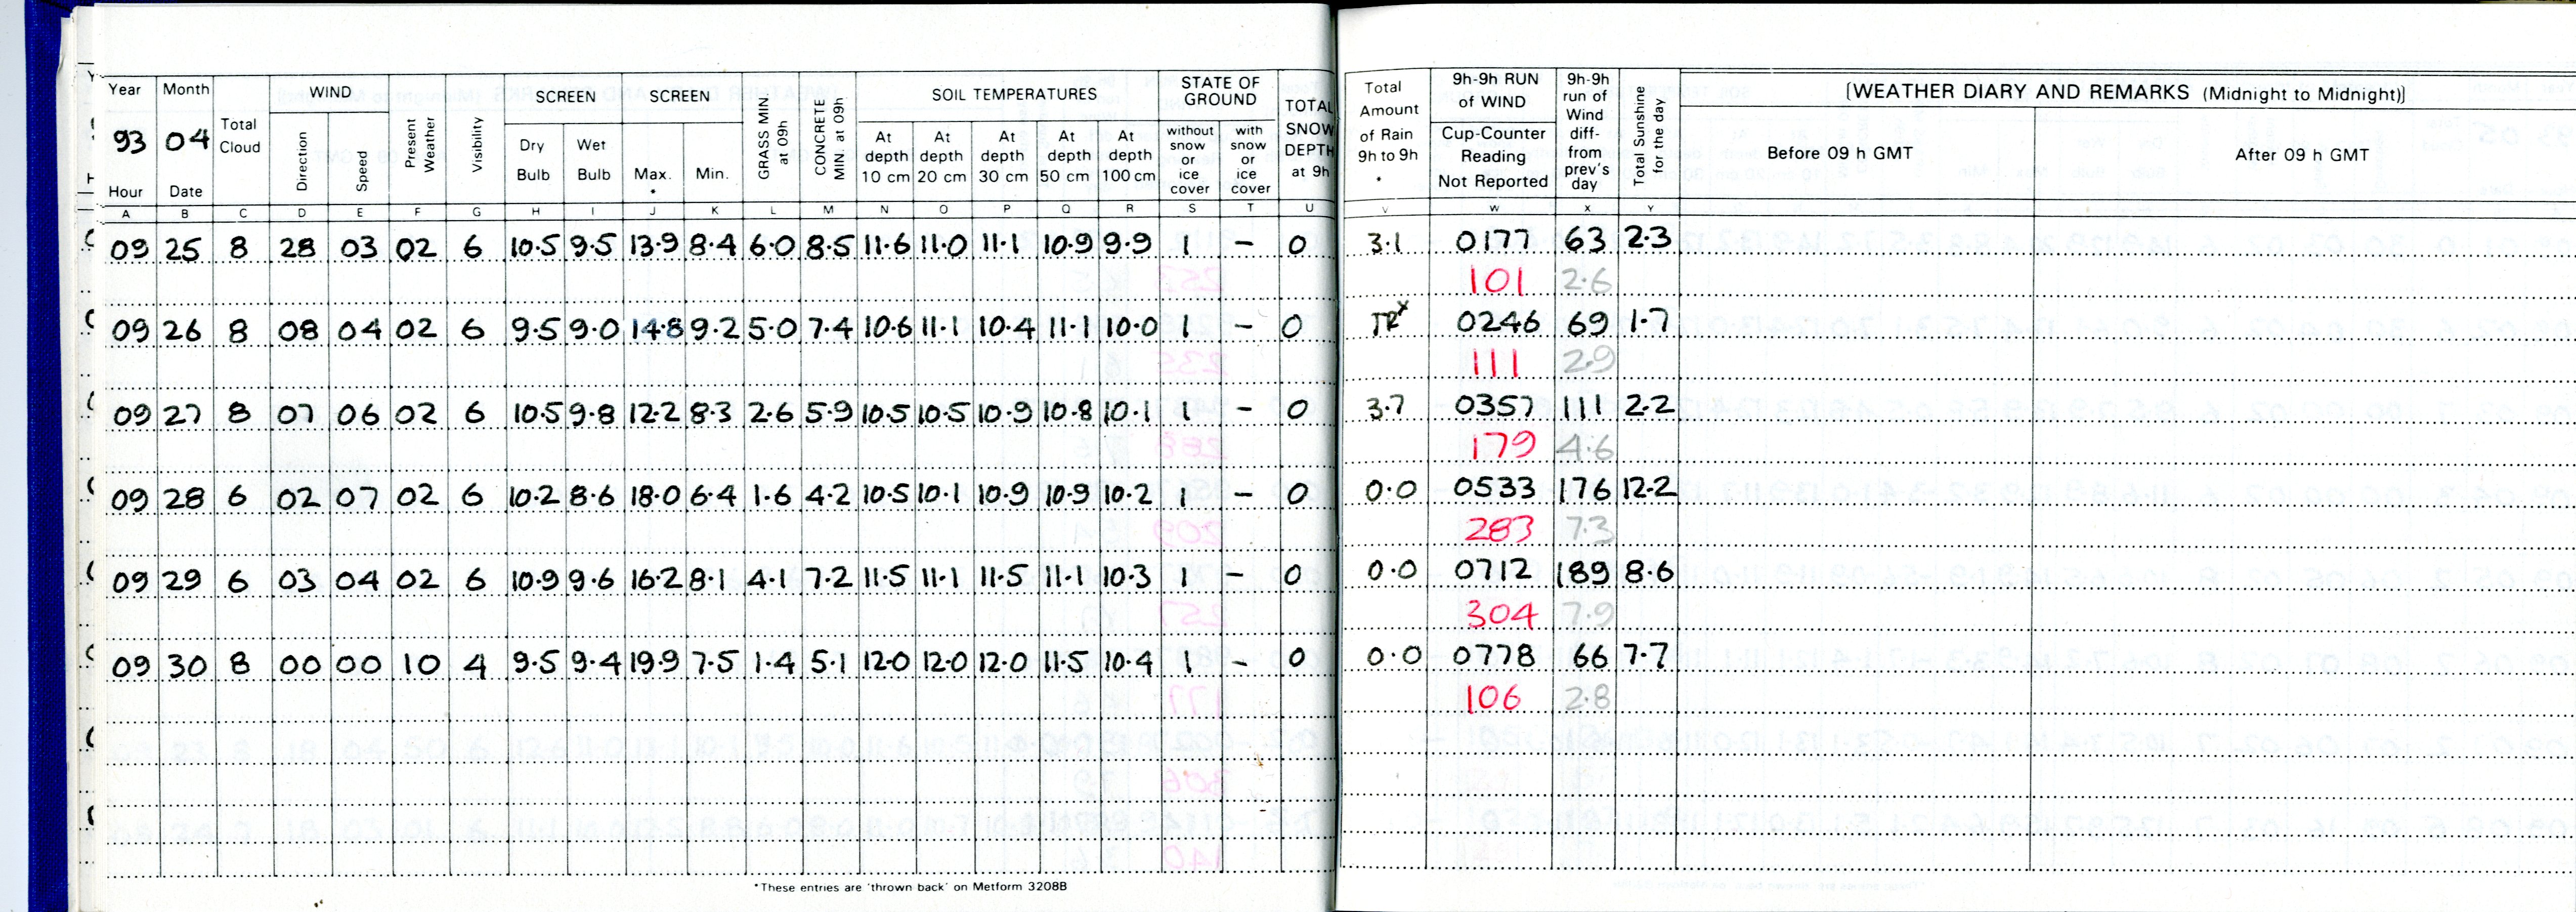 Year Month WIND SCREEN SCREEN SOIL TEMPERATURES STATE OF GROUND
93 04 Total Cloud Direction Speed Present Weather Visibility Dry Bulb Wet Bulb Max. * Min. GRASS MIN. at 09h CONCRETE MIN. at 09h At depth 10 cm At depth 20 cm At depth 30 cm At depth 50 cm At depth 100 cm without snow or ice cover with snow or ice cover TOTAL SNOW DEPTH at 9h
Hour Date
Total Amount of Rain 9h to 9h * 9h-9h RUN of WIND Cup-Counter Reading Not Reported 9h-9h run of Wind diff- from prev's day Total Sunshine for the day
[WEATHER DIARY AND REMARKS (Midnight to Midnight)]
Before 09 h GMT After 09 h GMT
A B C D E F G H I J K L M N O P Q R S T U V W X Y
09 25 8 28 03 02 6 10.5 9.5 13.9 8.4 6.0 8.5 11.6 11.0 11.1 10.9 9.9 1 – 0 3.1 0177 63 2.3
101 2.6
09 26 8 08 04 02 6 9.5 9.0 14.8 9.2 5.0 7.4 10.6 11.1 10.4 11.1 10.0 1 – 0 TR x 0246 69 1.7
111 2.9
09 27 8 07 06 02 6 10.5 9.8 12.2 8.3 2.6 5.9 10.5 10.5 10.9 10.8 10.1 1 – 0 3.7 0357 111 2.2
179 4.6
09 28 6 02 07 02 6 10.2 8.6 18.0 6.4 1.6 4.2 10.5 10.1 10.9 10.9 10.2 1 – 0 0.0 0533 176 12.2
283 7.3
09 29 6 03 04 02 6 10.9 9.6 16.2 8.1 4.1 7.2 11.5 11.1 11.5 11.1 10.3 1 – 0 0.0 0712 189 8.6
304 7.9
09 30 8 00 00 10 4 9.5 9.4 19.9 7.5 1.4 5.1 12.0 12.0 12.0 11.5 10.4 1 – 0 0.0 0778 66 7.7
106 2.8
*These entries are 'thrown back' on Metform 3208B